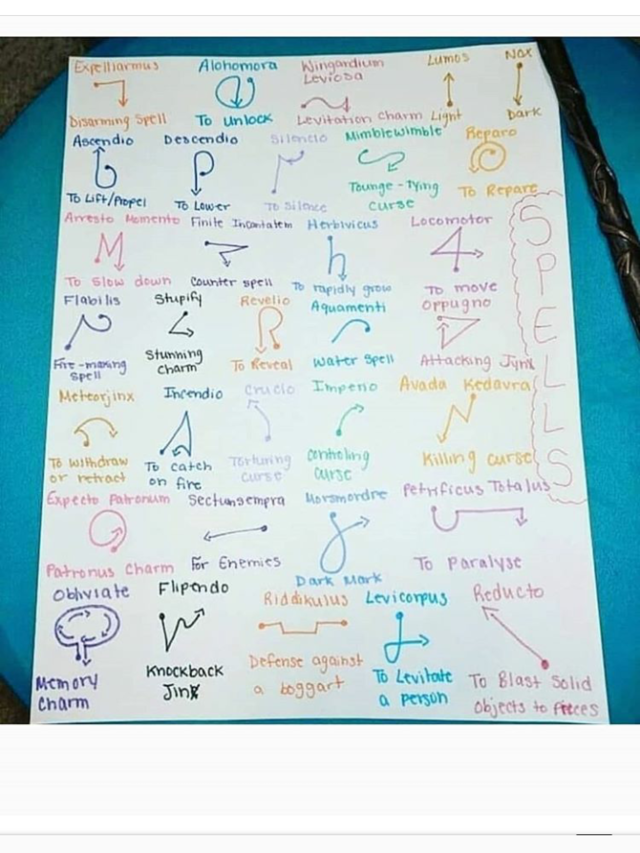 Expelliarmus
Disarming Spell
Alohomora
To Unlock
Wingardium
Leviosa
Levitation Charm
Lumos
Light
Nox
Dark
Ascendio
To Lift/Propel
Descendio
To Lower
Silencio
To Silence
Mimblewimble
Tounge-Tying
curse
Reparo
To Repare
Arresto Momento
To slow down
Finite Incantatem
Counter spell
Herbivicus
To rapidly grow
Locomotor
To move
Flabilis
Fire-making
spell
Stupify
Stunning
charm
Revelio
To Reveal
Aquamenti
Water Spell
Oppugno
Attacking Jynx
Meteorjinx
To withdraw
or retract
Incendio
To catch
on fire
Crucio
Torturing
curse
Imperio
curse
Avada Kedavra
Killing curse
Expecto Patronum
Patronus Charm
Sectumsempra
For Enemies
Morsmordre
Dark Mark
Petrificus Totalus
To Paralyse
Obliviate
Memory
Charm
Flipendo
Knockback
Jinx
Riddikulus
Defense against
a boggart
Levicorpus
To Levitate
a person
Reducto
To Blast Solid
objects to Pieces
SPELLS